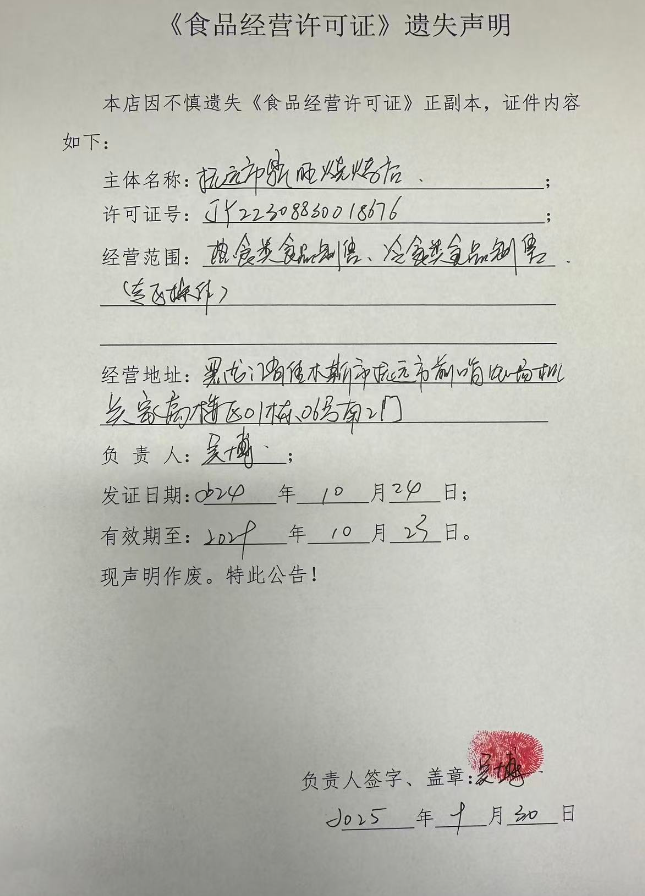 《食品经营许可证》遗失声明
本店因不慎遗失《食品经营许可证》正副本，证件内容
如下：
主体名称：抚远市 旺烧烤店；
许可证号：JY22308830018676；
经营范围：热食类食品制售、冷食类食品制售
经营地址：黑龙江省佳木斯市抚远市前哨农场机
关 家属楼 区01栋06号南2门
负 责 人：吴博；
发证日期：2024年10月24日；
有效期至：2029年10月23日。
现声明作废。特此公告！
负责人签字、盖章：吴博
2025年9月30日